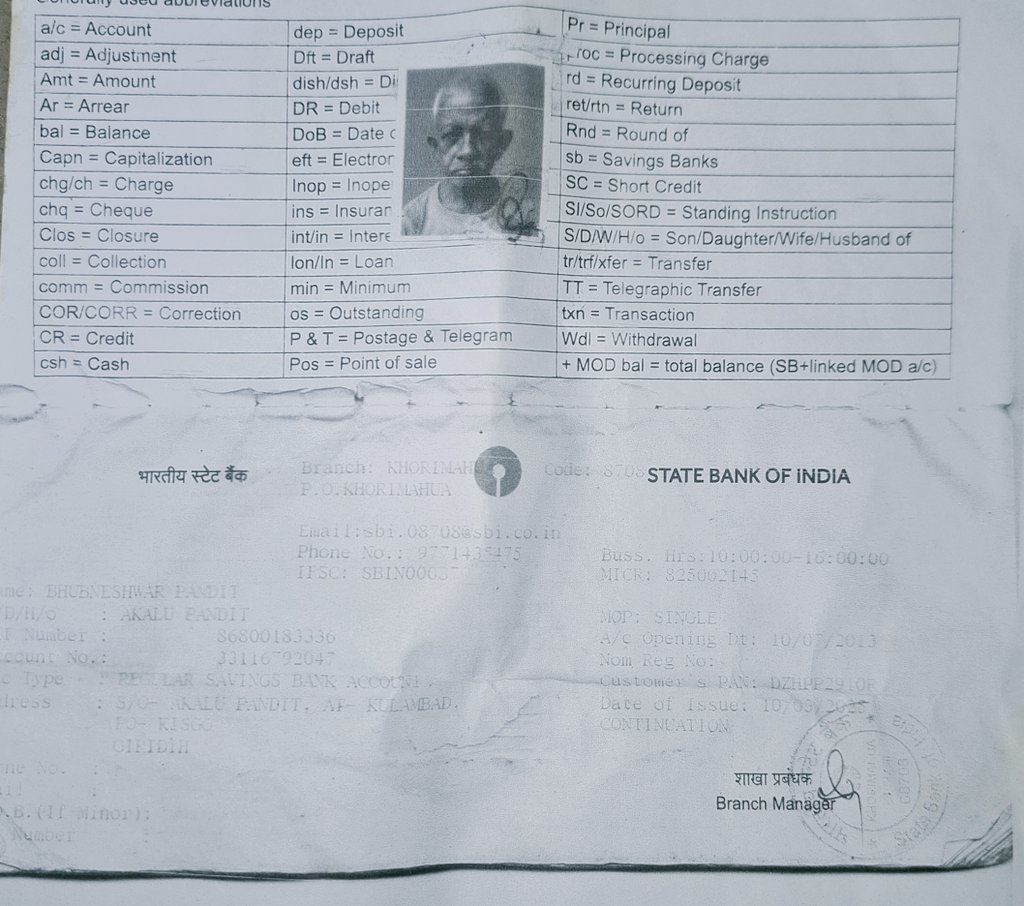 Generally used abbreviations
a/c = Account dep = Deposit Pr = Principal
adj = Adjustment Dft = Draft roc = Processing Charge
Amt = Amount dish/dsh = Di rd = Recurring Deposit
Ar = Arrear DR = Debit ret/rtn = Return
bal = Balance DoB = Date o Rnd = Round of
Capn = Capitalization eft = Electror sb = Savings Banks
chg/ch = Charge Inop = Inope SC = Short Credit
chq = Cheque ins = Insurar SI/So/SORD = Standing Instruction
Clos = Closure int/in = Intere S/D/W/H/o = Son/Daughter/Wife/Husband of
coll = Collection lon/ln = Loan tr/trf/xfer = Transfer
comm = Commission min = Minimum TT = Telegraphic Transfer
COR/CORR = Correction os = Outstanding txn = Transaction
CR = Credit P & T = Postage & Telegram Wdl = Withdrawal
csh = Cash Pos = Point of sale + MOD bal = total balance (SB+linked MOD a/c)
भारतीय स्टेट बैंक Branch: KHORIMAHU Code: 8708 STATE BANK OF INDIA
P.O.KHORIMAHUA
Email:sbi.08708@sbi.co.in
Phone No.: 9771435475 Buss. Hrs:10:00:00-16:00:00
IFSC: MICR: 825002145
me: BHUBNESHWAR PANDIT
/D/H/o : AKALU PANDIT MOP: SINGLE
F Number : 86800183336 A/c Opening Dt: 10/07/2013
count No.: 33116792047 Nom Reg No:
c Type : REGULAR SAVINGS BANK ACCOUNT Customer's PAN:
dress : S/O- AKALU PANDIT, AT- KULAMBAD, Date of Issue:
PO- KISGO CONTINUATION
GIRIDIH
ne No. :
il :
.B.(If Minor):
Number :
शाखा प्रबंधक
Branch Manager
State Bank